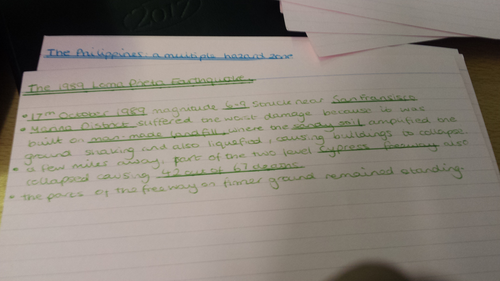 2012
The Philippines: a multiple hazard zone
The 1989 Loma Prieta Earthquake
• 17th October 1989 magnitude 6.9 struck near San Francisco
• Marina District suffered the worst damage because it was
built on man-made landfill, where the sandy soil amplified the
ground shaking and also liquefied, causing buildings to collapse.
• a few miles away, part of the two level Cypress freeway also
collapsed causing 42 out of 67 deaths.
• the parts of the freeway on firmer ground remained standing.